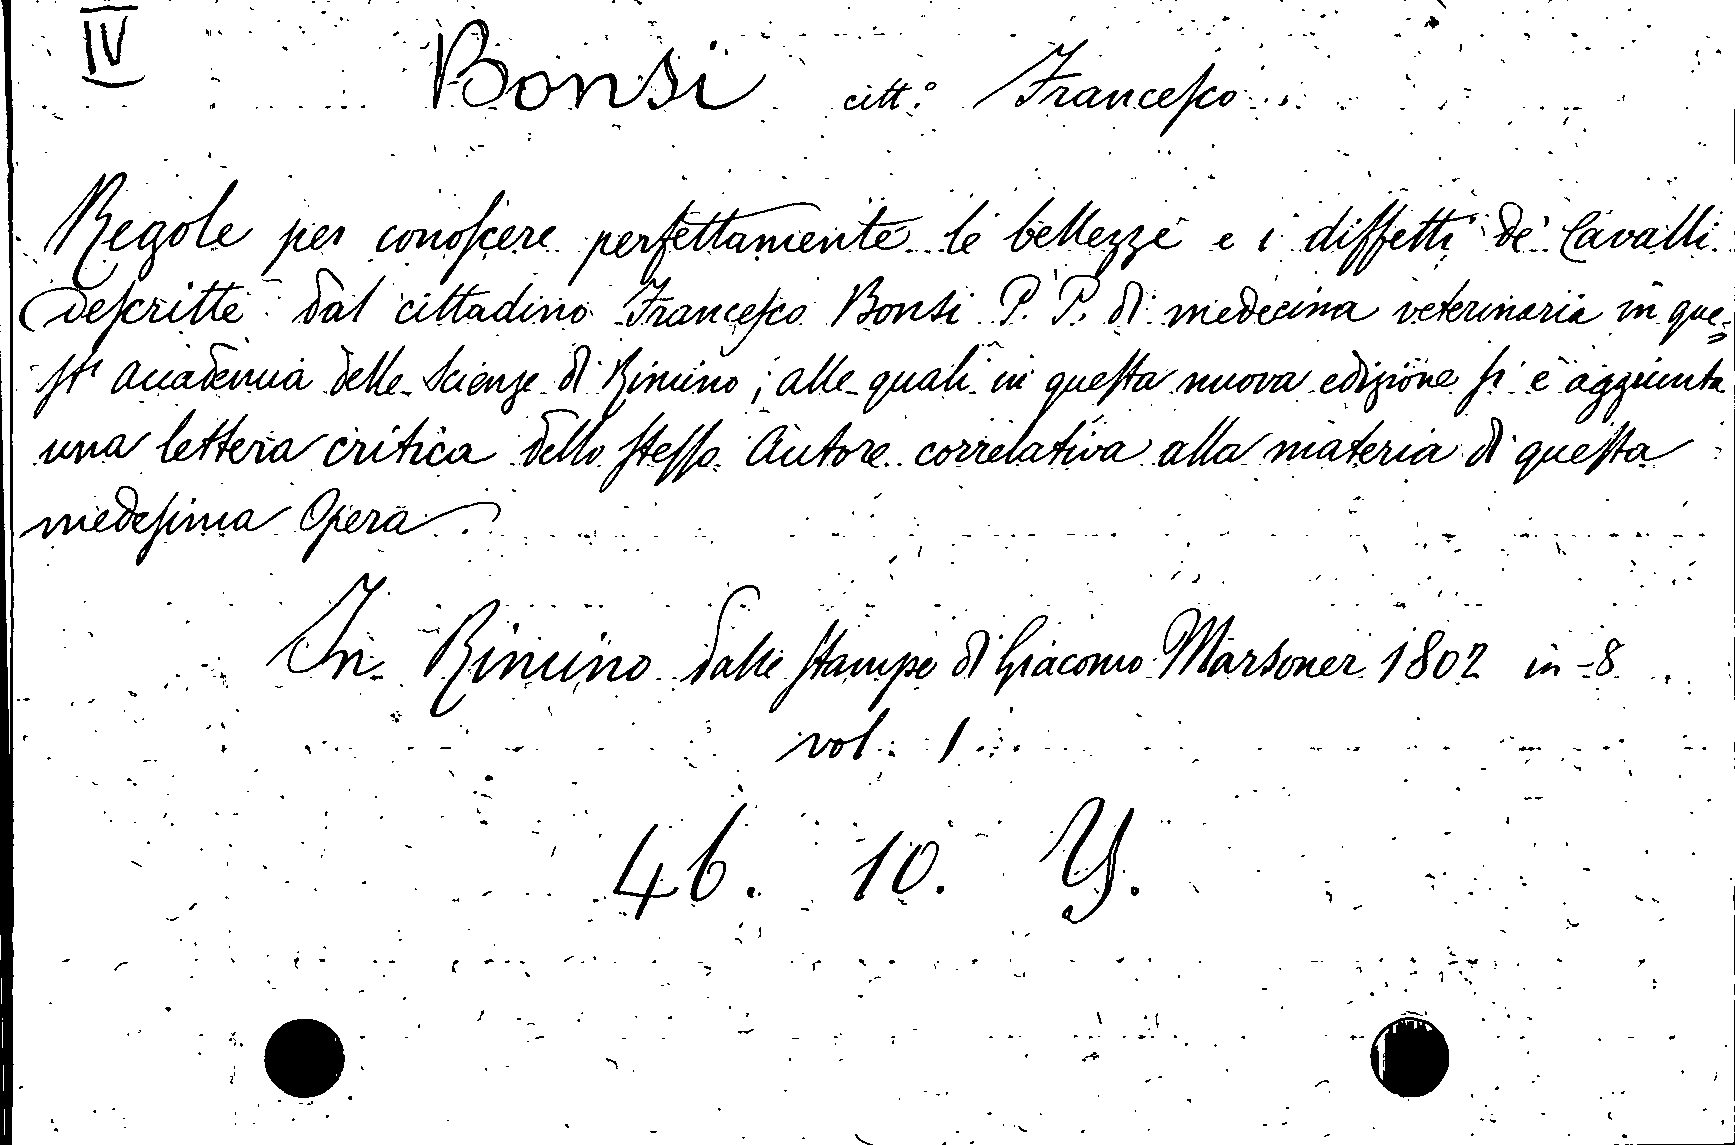 IV
Bonsi citt.o Francesco
Regole per conoscere perfettamente le bellezze e i diffetti de' Cavalli
descritte dal cittadino Francesco Bonsi P. P. di medecina veterinaria in que=
st' accademia delle Scienze di Rimino; alle quali in questa nuova edizione si è aggiunta
una lettera critica dello stesso Autore correlativa alla materia di questa
medesima Opera.
In Rimino dalle stampe di Giacomo Marsoner 1802 in-8
vol. 1
46. 10. Y.